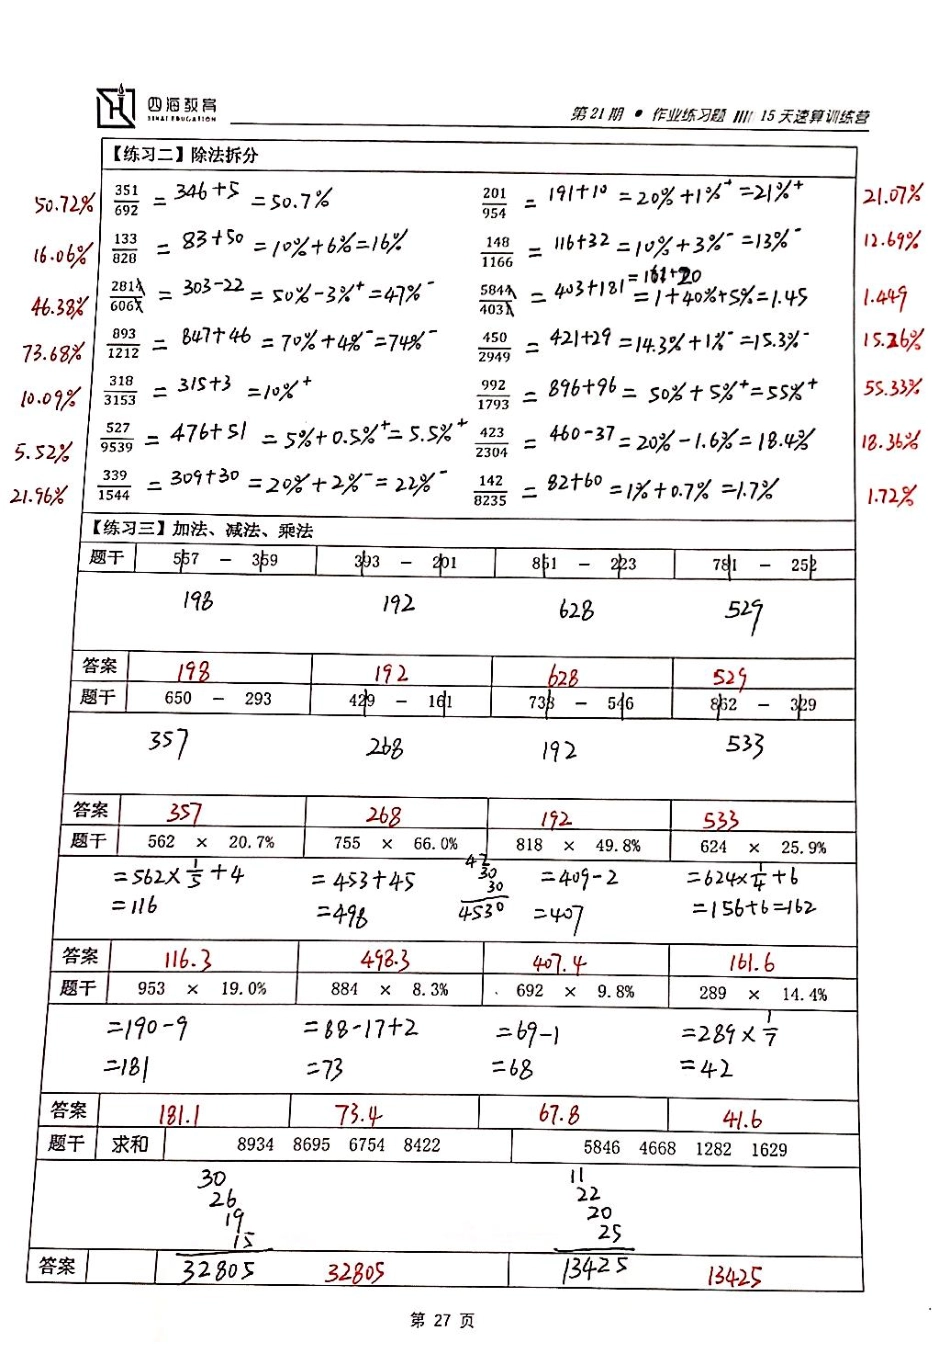 四海教育
SIHAI EDUCATION
第21期 • 作业练习题 //// 15天速算训练营
【练习二】除法拆分
50.72% 351/692 = 346+5 = 50.7% 201/954 = 191+10 = 20%+1%⁺ = 21%⁺ 21.07%
16.06% 133/828 = 83+50 = 10%+6% = 16% 148/1166 = 116+32 = 10%+3%⁻ = 13%⁻ 12.69%
46.38% 2814/606 = 303-22 = 50%-3%⁺ = 47%⁻ 5844/403 = 403+181 = 161+20 = 1+40%+5% = 1.45 1.449
73.68% 893/1212 = 847+46 = 70%+4%⁻ = 74%⁻ 450/2949 = 421+29 = 14.3%+1%⁻ = 15.3%⁻ 15.26%
10.09% 318/3153 = 315+3 = 10%⁺ 992/1793 = 896+96 = 50%+5%⁺ = 55%⁺ 55.33%
5.52% 527/9539 = 476+51 = 5%+0.5%⁺ = 5.5%⁺ 423/2304 = 460-37 = 20%-1.6% = 18.4% 18.36%
21.96% 339/1544 = 309+30 = 20%+2%⁻ = 22%⁻ 142/8235 = 82+60 = 1%+0.7% = 1.7% 1.72%
【练习三】加法、减法、乘法
题干 557 - 359 393 - 201 851 - 223 781 - 252
198 192 628 529
答案 198 192 628 529
题干 650 - 293 429 - 161 738 - 546 862 - 329
357 268 192 533
答案 357 268 192 533
题干 562 × 20.7% 755 × 66.0% 818 × 49.8% 624 × 25.9%
=562×1/5+4 =453+45 42 30 30 4530 =409-2 =624×1/4+6
=116 =498 =407 =156+6=162
答案 116.3 498.3 407.4 161.6
题干 953 × 19.0% 884 × 8.3% 692 × 9.8% 289 × 14.4%
=190-9 =88-17+2 =69-1 =289×1/7
=181 =73 =68 =42
答案 181.1 73.4 67.8 41.6
题干 求和 8934 8695 6754 8422 5846 4668 1282 1629
30 11
26 22
19 20
15 25
答案 32805 32805 13425 13425
第 27 页